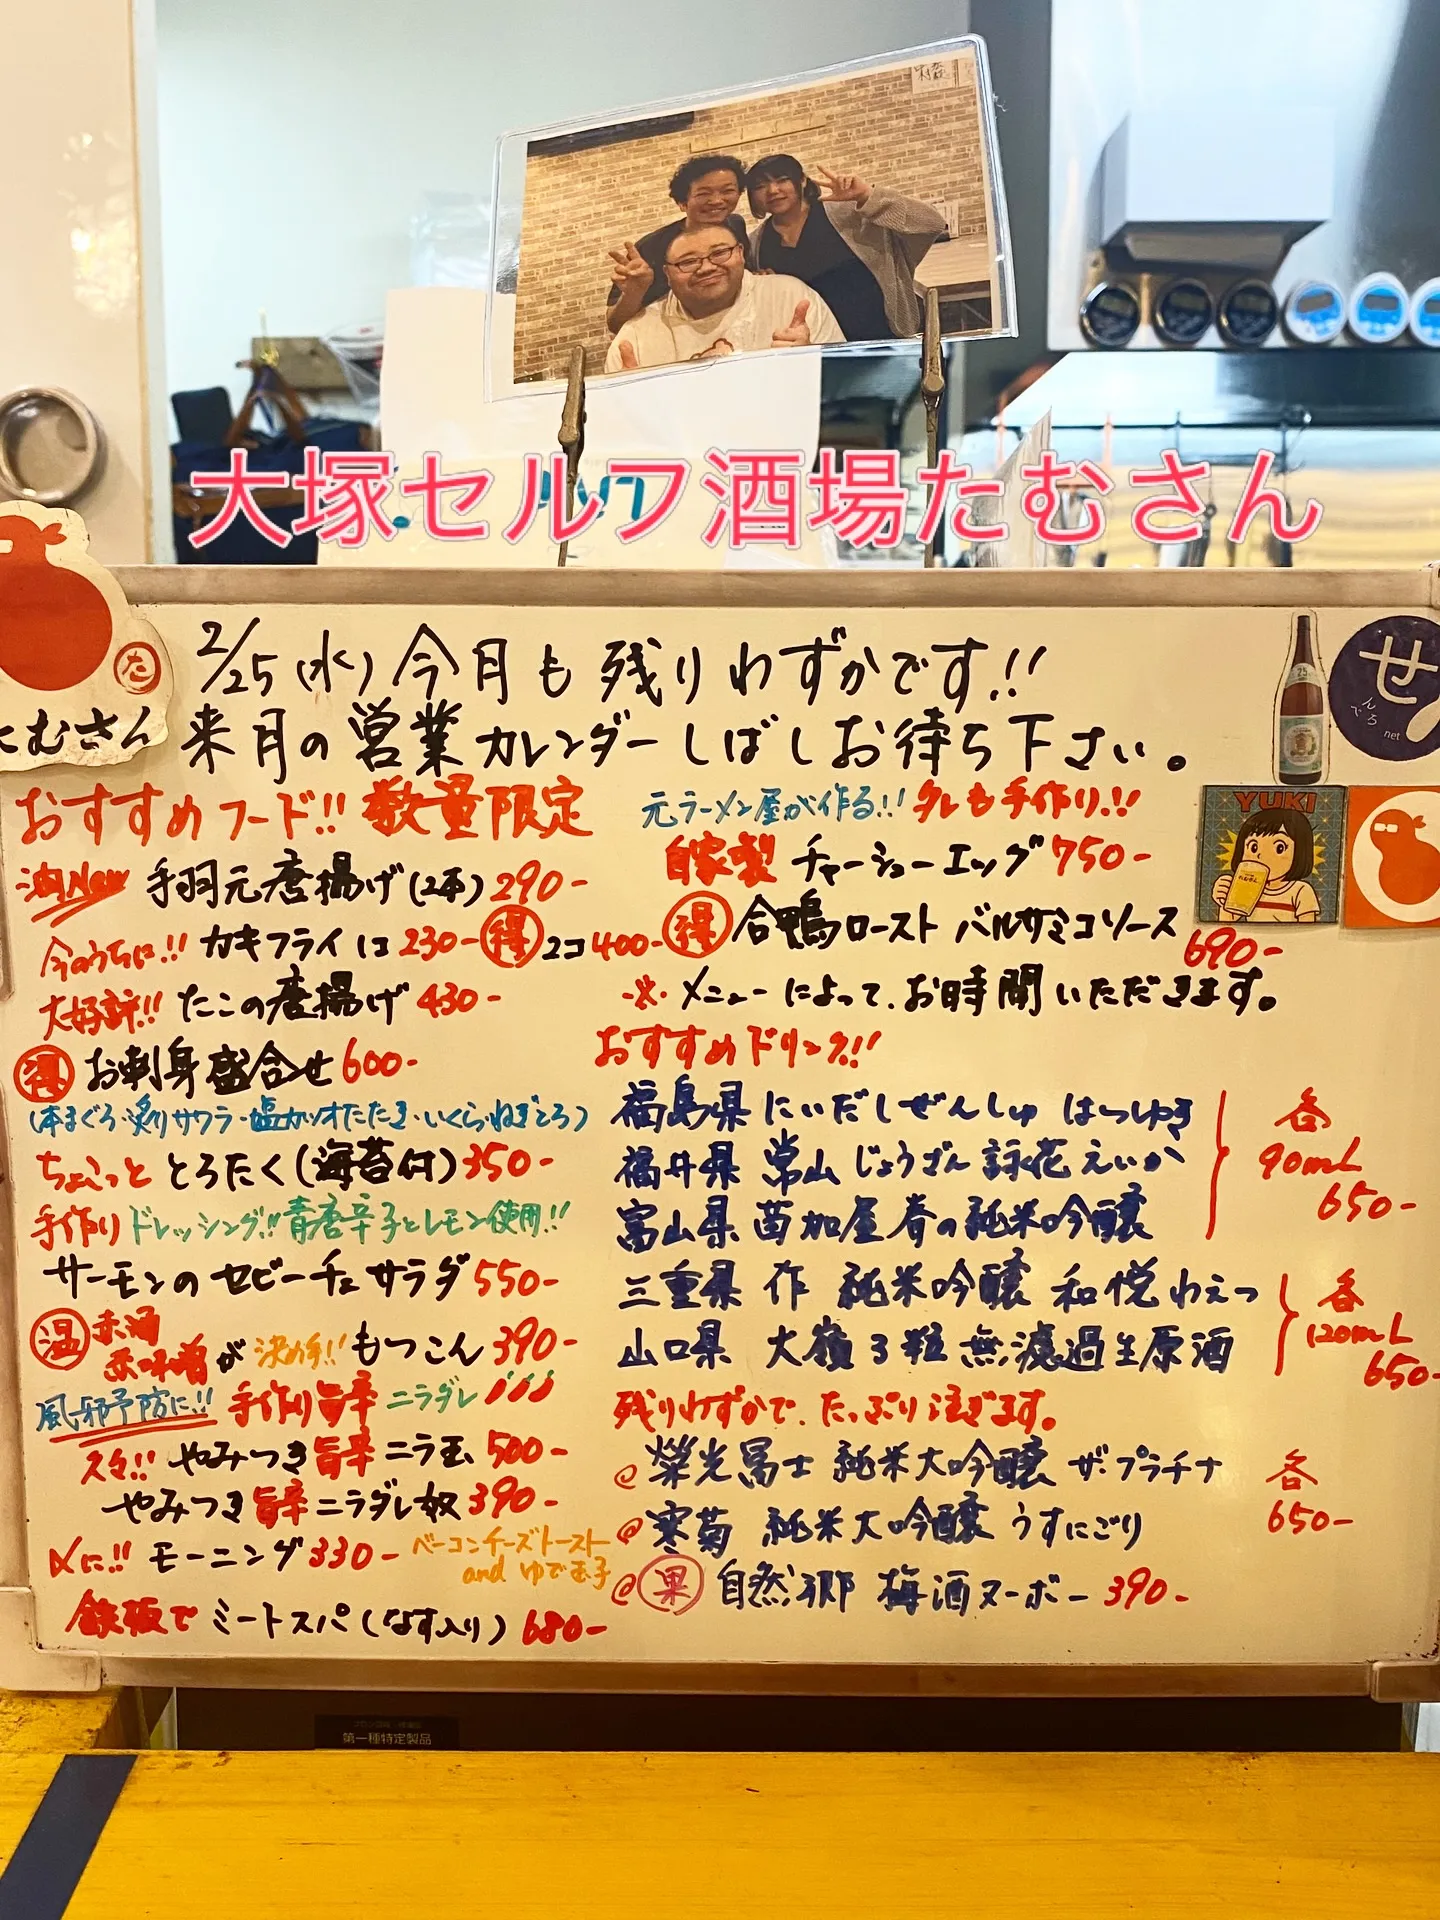 大塚セルフ酒場たむさん
2/25(水)今月も残りわずかです!!
たむさん
来月の営業カレンダーしばしお待ち下さい。
せ
んでろ
net
YUKI
おすすめフード!! 数量限定
New 手羽元唐揚げ(2本)290-
今のうちに!! カキフライ1コ230- 得 2コ400-
大好評!! たこの唐揚げ430-
得 お刺身盛合せ600-
(本まぐろ・炙りサワラ・塩カツオたたき・いくら・ねぎとろ)
ちょこっと とろたく(海苔付)350-
手作りドレッシング!! 青唐辛子とレモン使用!!
サーモンのセビーチェサラダ550-
温 赤酒 赤味噌が決め手!! もつこん390-
風邪予防に!! 手作り旨辛ニラダレ
久々!! やみつき旨辛ニラ玉500-
やみつき旨辛ニラダレ奴390-
〆に!! モーニング330- ベーコンチーズトースト
and ゆで玉子
鉄板でミートスパ(なす入り)680-
元ラーメン屋が作る!! タレも手作り!!
自家製 チャーシューエッグ750-
得 合鴨ロースト バルサミコソース
690-
※メニューによって、お時間いただきます。
おすすめドリンク!!
福島県 にいだしぜんしゅ はつゆき
福井県 常山じょうざん 詠花えいか
富山県 苗加屋 春の純米吟醸
各
90mL
650-
三重県 作 純米吟醸 和悦わえつ
山口県 大嶺3粒 無濾過生原酒
各
120mL
650-
残りわずかで、たっぷり注ぎます。
@栄光冨士 純米大吟醸 ザ・プラチナ
@寒菊 純米大吟醸 うすにごり
各
650-
@果 自然郷 梅酒ヌーボー390-
第一種特定製品